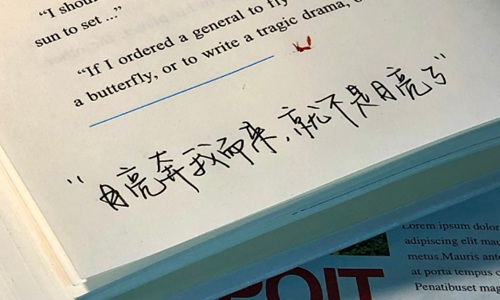 “I shou
sun to set ...”
“If I ordered a general to fly
a butterfly, or to write a tragic drama,
“月亮奔我而来，就不是月亮了”
Lorem ipsum dolor
adipiscing elit mau
metus.Mauris ante
at porta tempus
Penatibuset mag
POIT